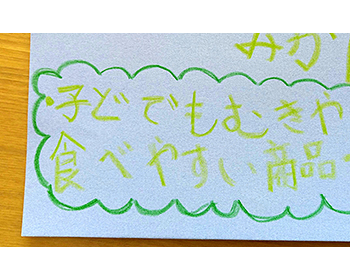 みか
・子どでもむきや
食べやすい商品